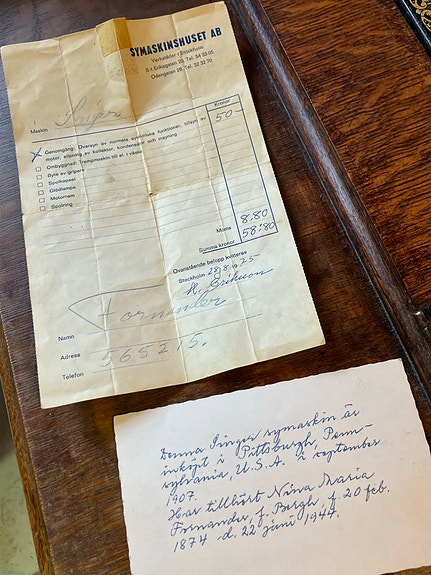 SYMASKINSHUSET AB
Verkstäder i Stockholm
S:t Eriksgatan 20, Tel. 54 33 05
Odengatan 26, Tel. 32 32 70
Maskin Singer
Kronor
Genomgång: Översyn av normala symaskins funktioner, tillsyn av
motor, slipning av kollektor, kondensator och mayning
50-
Ombyggnad: Trampmaskin till el. i väska
Byte av gripare
Spolkapsel
Glödlampa
Motorrem
Spolring
Moms 8.80
Summa kronor 58.80
Ovanstående belopp kvitteras
Stockholm 28/8 1975
H. Erikson
Namn Fornander
Adress
Telefon 565215.
Denna Singer symaskin är
inköpt i Pittsburgh, Penn-
sylvania, U.S.A. i september
1907.
Har tillhört Nina Maria
Fornander, f. Bergh, f. 20 feb.
1874 d. 22 juni 1944.